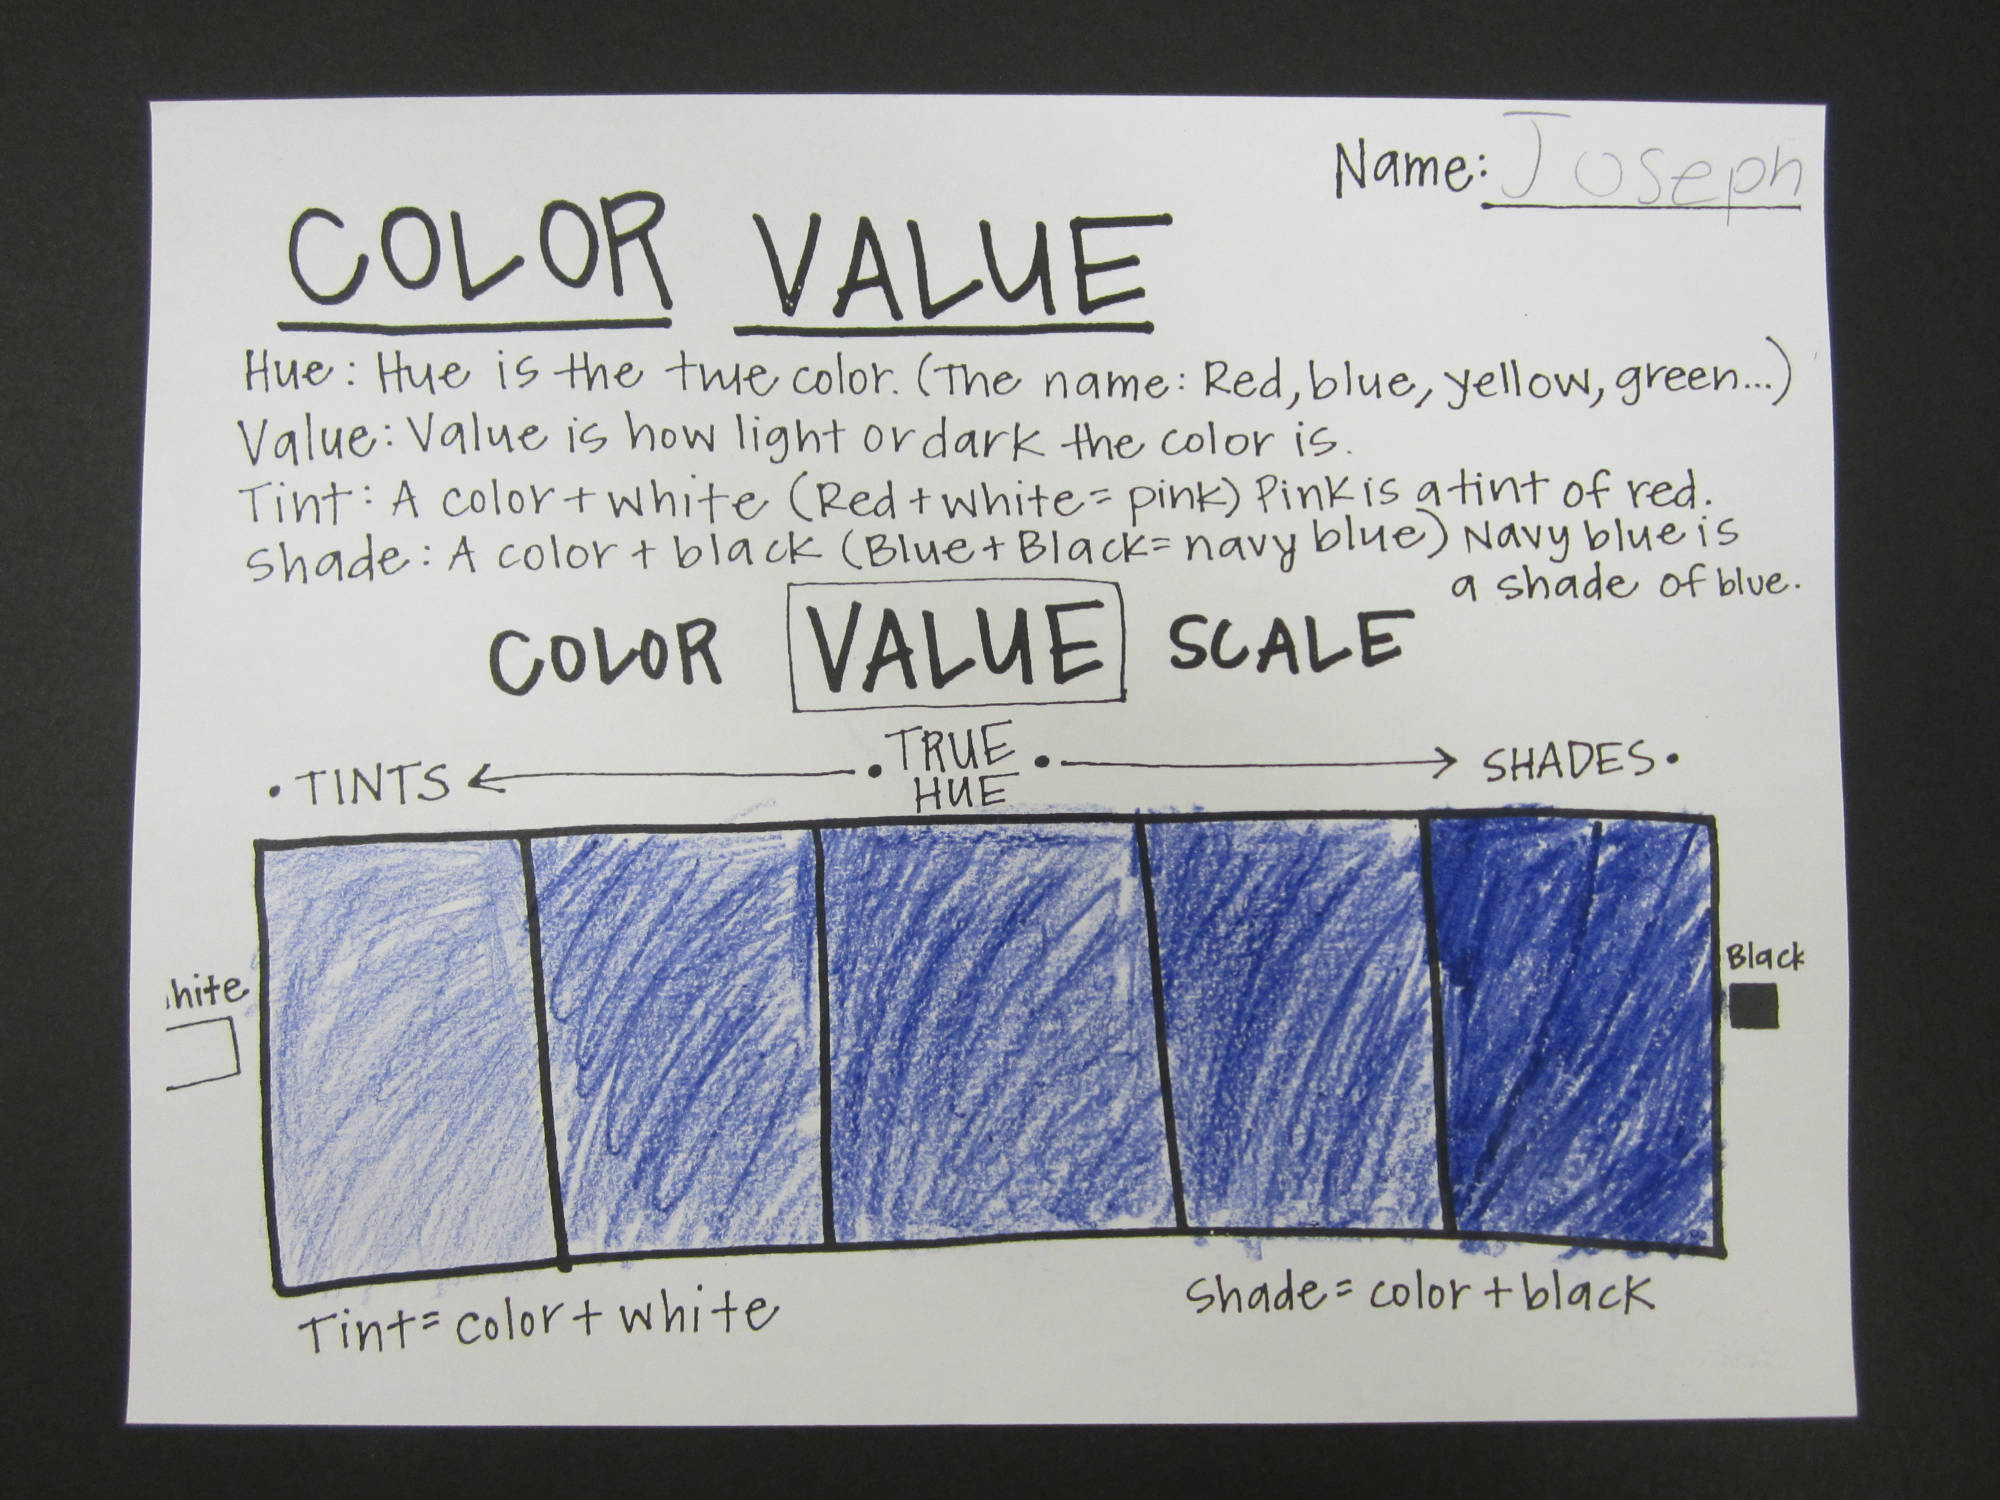 Name: Joseph
COLOR VALUE
Hue: Hue is the true color. (The name: Red, blue, yellow, green...)
Value: Value is how light or dark the color is.
Tint: A color + white (Red + white = pink) Pink is a tint of red.
Shade: A color + black (Blue + Black = navy blue) Navy blue is
a shade of blue.
COLOR VALUE SCALE
• TINTS ← • TRUE • → SHADES •
HUE
hite
Black
Tint = color + white
Shade = color + black